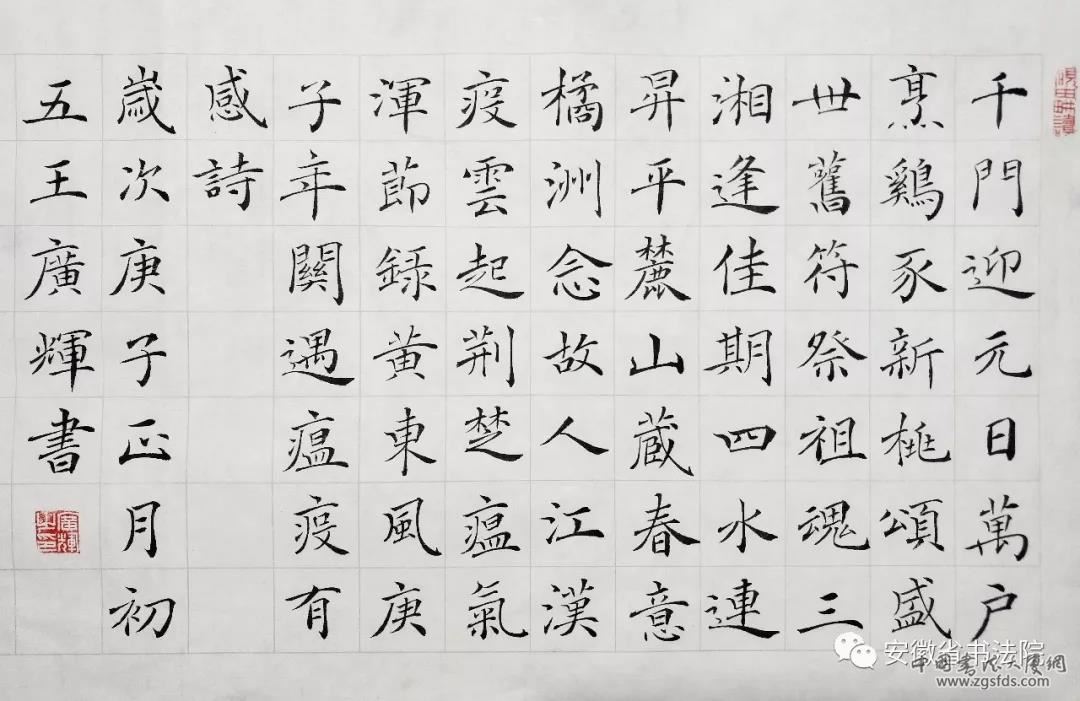 千門迎元日萬户
烹鷄豕新桃頌盛
世舊符祭祖魂三
湘逢佳期四水連
昇平麓山蔵春意
橘洲念故人江漢
疫雲起荆楚瘟氣
渾節録黄東風庚
子年關遇瘟疫有
感詩
歲次庚子正月初
五王廣輝書
安徽省书法院
中国书法大厦網
www.zgsfds.com